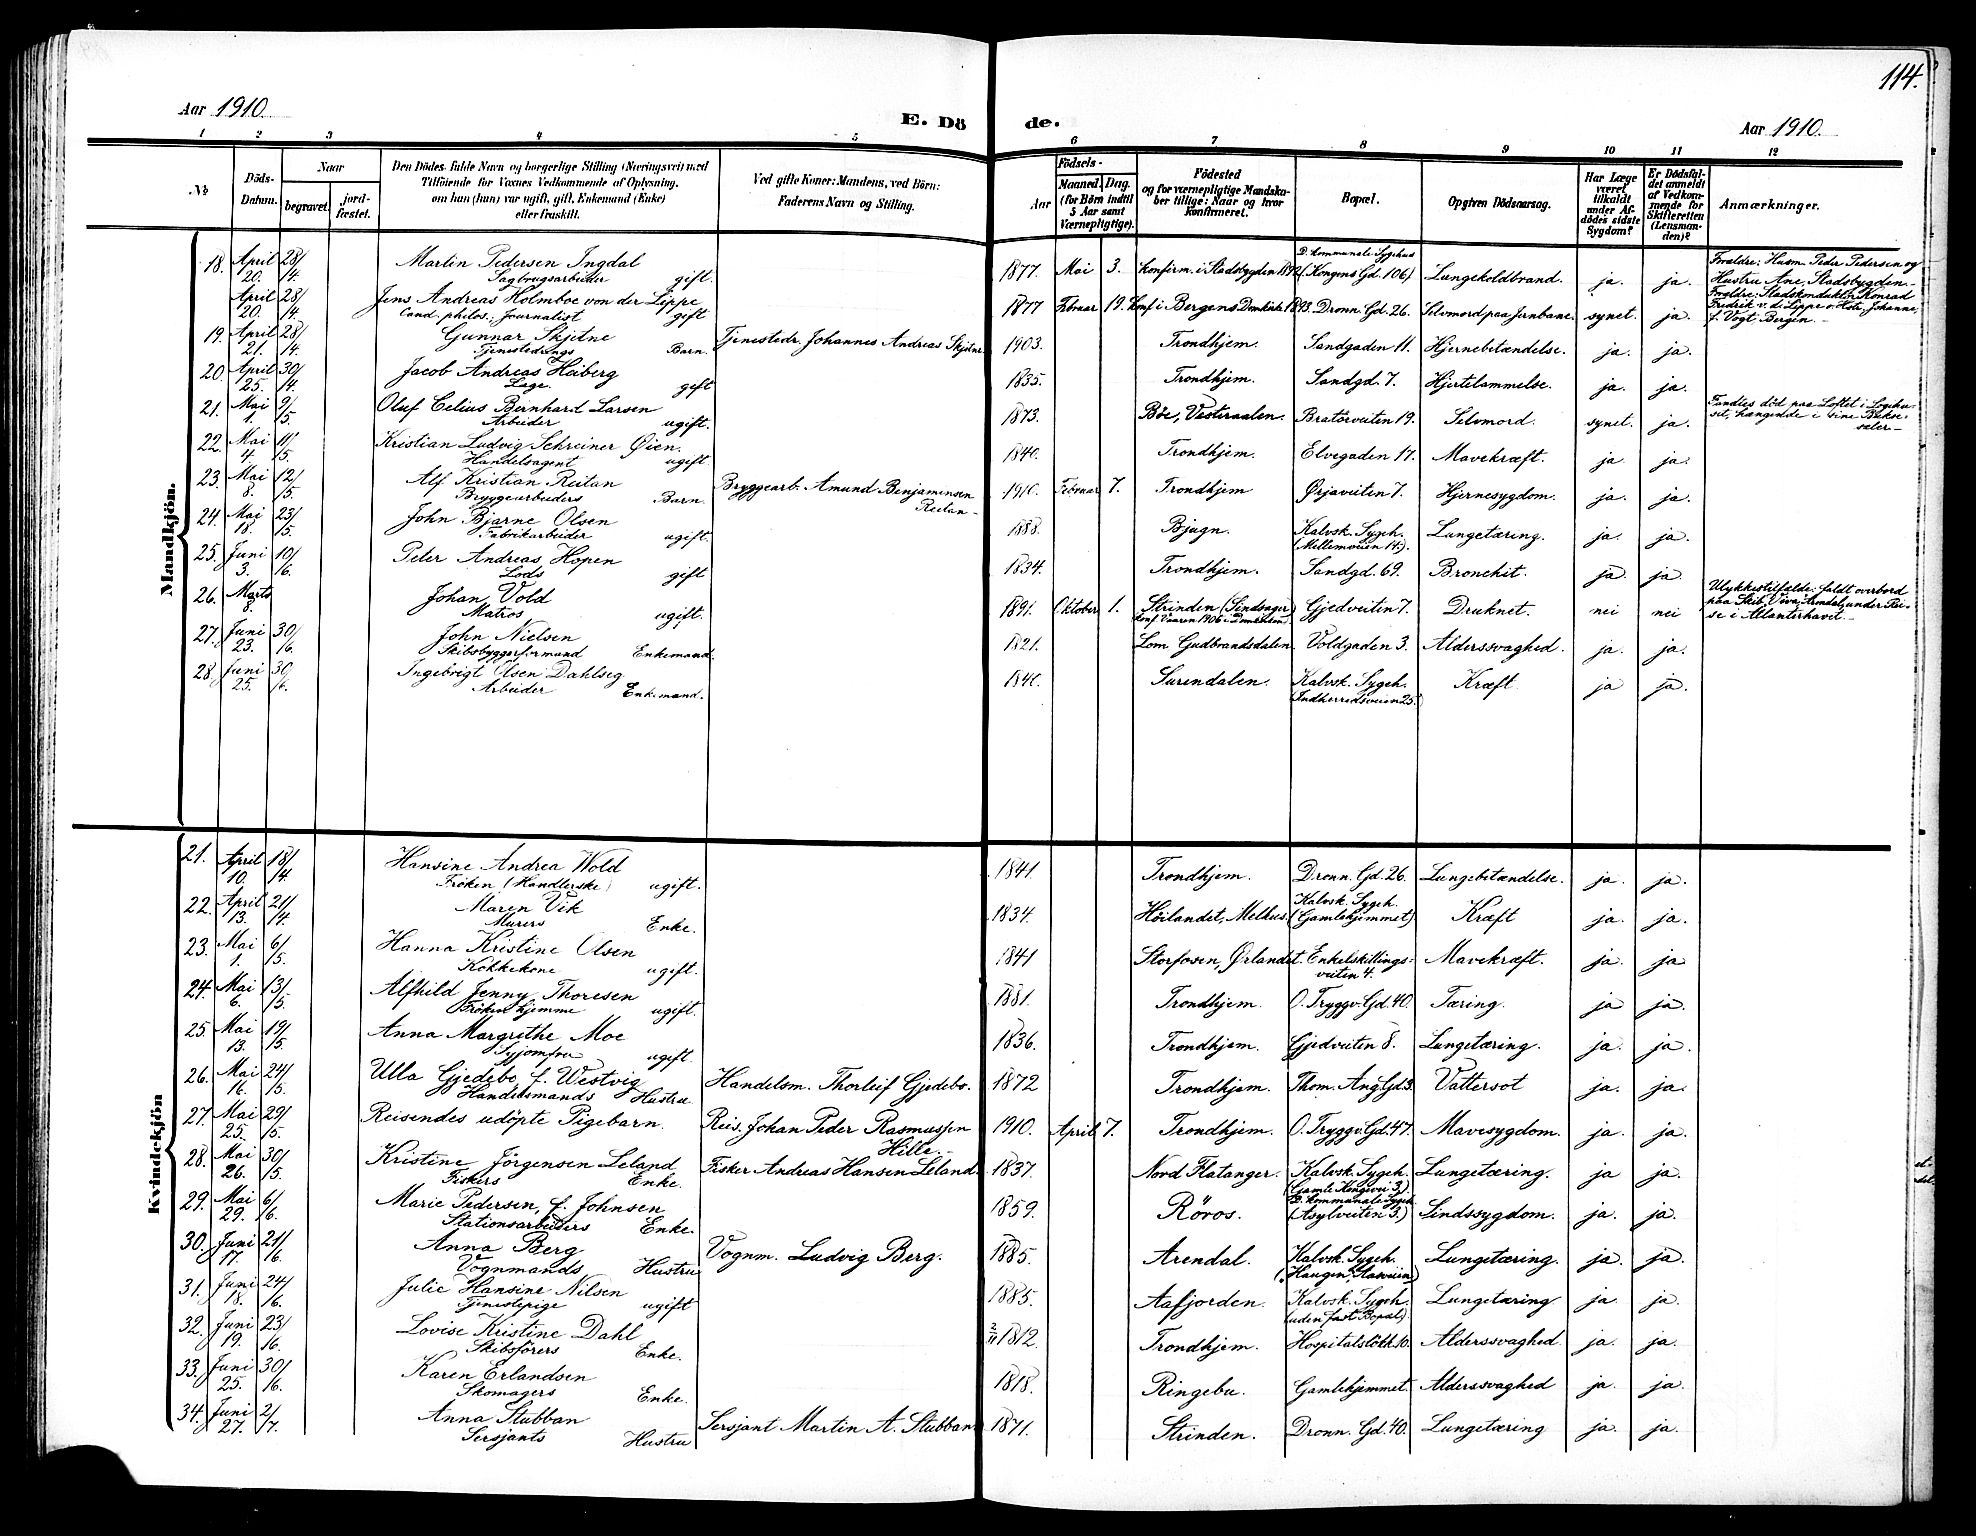 114.
Aar 1910.
E. Dö de.
Aar 1910.
1 2 3 4 5 6 7 8 9 10 11 12
No
Döds-Datum.
Naar
begravet.
jord-fæstet.
Den Dödes fulde Navn og borgerlige Stilling (Næringsvei) med
Tilföiende for Voxnes Vedkommende af Oplysning,
om han (hun) var ugift, gift, Enkemand (Enke)
eller fraskilt.
Ved gifte Koner: Mandens, ved Börn:
Faderens Navn og Stilling.
Födsels-
Aar
Maaned. Dag.
(for Börn indtil
5 Aar samt
Værnepligtige).
Födested
og for værnepligtige Mandska-
ber tillige: Naar og hvor
konfirmeret.
Bopæl.
Opgiven Dödsaarsag.
Har Læge
været
tilkaldt
under Af-
dödes sidste
Sygdom?
Er Dödsfal-
det anmeldt
af Vedkom-
mende for
Skifteretten
(Lensman-
den)?
Anmærkninger.
Mandkjön.
18. April 20. 28/4. Martin Pedersen Ingdal Sagbrugsarbeider gift. 1877. Mai 3. Konfirm. i Stadsbygden 1892 D. kommunale Sygehus (Kongens Gd. 106) Lungekoldbrand. ja. ja. Forældre: Husm. Peder Pedersen og Hustru Ane, Stadsbygden.
April 20. 28/4. Jens Andreas Holmboe von der Lippe Cand. philos.; Journalist gift 1877 Februar 19. Konf. i Bergens Domkirk 1893. Dronn. Gd. 26. Selvmord paa Jernbane. synet. ja. Forældre: Stadskonduktör Konrad Fredrik v. d. Lippe o. Hstr. Johanne, f. Vogt Bergen.
19. April 21. 28/4. Gunnar Skjetne Tjenestedrengs Barn. Tjenestedr. Johannes Andreas Skjetne 1903. Trondhjem. Sandgaden 11. Hjernebetændelse. ja. ja.
20. April 25. 30/4. Jacob Andreas Heiberg Læge. gift 1835. Trondhjem. Sandgd. 7. Hjertelammelse. ja. ja.
21. Mai 1. 9/5. Oluf Celius Bernhard Larsen Arbeider ugift. 1873. Böe, Vesteraalen. Bratörveiten 19. Selvmord. synet. ja. Fandtes död paa Loftet i Sygehuset, hængende i sine Bukseseler
22. Mai 4. 11/5. Kristian Ludvig Schreiner Øien. Handelsagent ugift 1840. Trondhjem. Elvegaden 17. Mavekræft. ja ja.
23. Mai 8. 12/5. Alf Kristian Reitan Bryggearbeiders Barn. Bryggearb. Amund Benjaminsen Reitan 1910. Februar 7. Trondhjem Ørjaveiten 7. Hjernesygdom. ja. ja.
24. Mai 18. 23/5. John Bjarne Olsen Fabrikarbeider ugift. 1888. Bjugn. Kalvsk. Sygeh. (Mellemveien 14). Lungetæring. ja. ja.
25. Juni 3. 10/6. Peter Andreas Hopen Lods gift 1834. Trondhjem. Sandgd. 69. Bronchit. ja. ja.
26. Marts 8. Johan Vold Matros ugift. 1891. Oktober 1. Strinden (Sindsager) Konf. Vaaren 1906 i Domkirken Gjedveiten 7. Druknet. nei nei Ulykkestilfælde: faldt overbord paa Skib "Viva", Arendal, under Reise i Atlanterhavet.
27. Juni 23. 30/6. John Nielsen Skibsbyggerformand Enkemand. 1821. Lom Gudbrandsdalen. Voldgaden 3. Alderssvaghed. ja. ja.
28. Juni 25. 30/6. Ingebrigt Olsen Dahlseg Arbeider Enkemand. 1840. Surendalen. Kalvsk. Sygeh. (Indherredsveien 25.) Kræft. ja ja.
Kvindekjön
21. April 10. 18/4 Hansine Andrea Wold Fröken (Handlerske) ugift. 1841. Trondhjem. Dronn. Gd. 26. Lungebetændelse. ja. ja.
22. April 13. 21/4. Maren Vik Murers Enke. 1834. Höilandet, Melhus. Kalvsk. Sygeh. (Gamlehjemmet) Kræft ja. ja.
23. Mai 1. 6/5. Hanna Kristine Olsen Kokkekone ugift. 1841 Storfosen, Ørlandet. Enkelskillings-veiten 4. Mavekræft. ja. ja
24. Mai 6. 13/5. Alfhild Jenny Thoresen Fröken hjemme ugift. 1881. Trondhjem. O. Tryggv. Gd. 40. Tæring. ja ja.
25. Mai 13. 19/5. Anna Margrethe Moe Syjomfru ugift. 1836. Trondhjem. Gjedveiten 8. Lungetæring. ja. ja.
26. Mai 16. 24/5. Ulla Gjedebo, f. Westvig Handelsmands Hustru Handelsm. Thorleif Gjedebo. 1872 Trondhjem. Thom. Ang. Gd. 3. Vattersot ja. ja.
27. Mai 25. 29/5. Reisendes udöpte Pigebarn. Reis. Johan Peder Rasmussen Hille. 1910. April 7. Trondhjem. O. Tryggv. Gd. 47. Mavesygdom. ja. ja.
28. Mai 26. 30/5. Kristine Jörgensen Leland Fiskers Enke. Fisker Andreas Hansen Leland 1837. Nord Flatanger. Kalvsk. Sygeh. (Gamle Kongevei 3.) Lungetæring. ja ja.
29. Mai 29. 6/6. Marie Pedersen, f. Johnsen Stationsarbeiders Enke. 1859. Röros. D. kommunale Sygeh. (Asylveiten 3.) Sindssygdom. ja. ja.
30. Juni 17. 21/6. Anna Berg Vognmands Hustru Vognm. Ludvig Berg. 1885. Arendal. Kalvsk. Sygeh. Lungetæring. ja. ja.
31. Juni 18. 24/6. Julie Hansine Nilsen Tjenestepige ugift 1885. Aafjorden. Kalvsk. Sygeh. (uden fast Bopæl). Lungetæring ja. ja.
32. Juni 19. 23/6. Lovise Kristine Dahl Skibsförers Enke. 2/11 1812. Trondhjem. Hospitalslökk. 10. Alderssvaghed. ja. ja.
33. Juni 25. 30/6. Karen Erlandsen Skomagers Enke. 1818. Ringebu. Gamlehjemmet. Alderssvaghed ja. ja.
34. Juni 27. 2/7. Anna Stubban Sersjants Hustru Sersjant Martin A. Stubban 1871. Strinden. Dronn. Gd. 40. Lungetæring ja. ja.